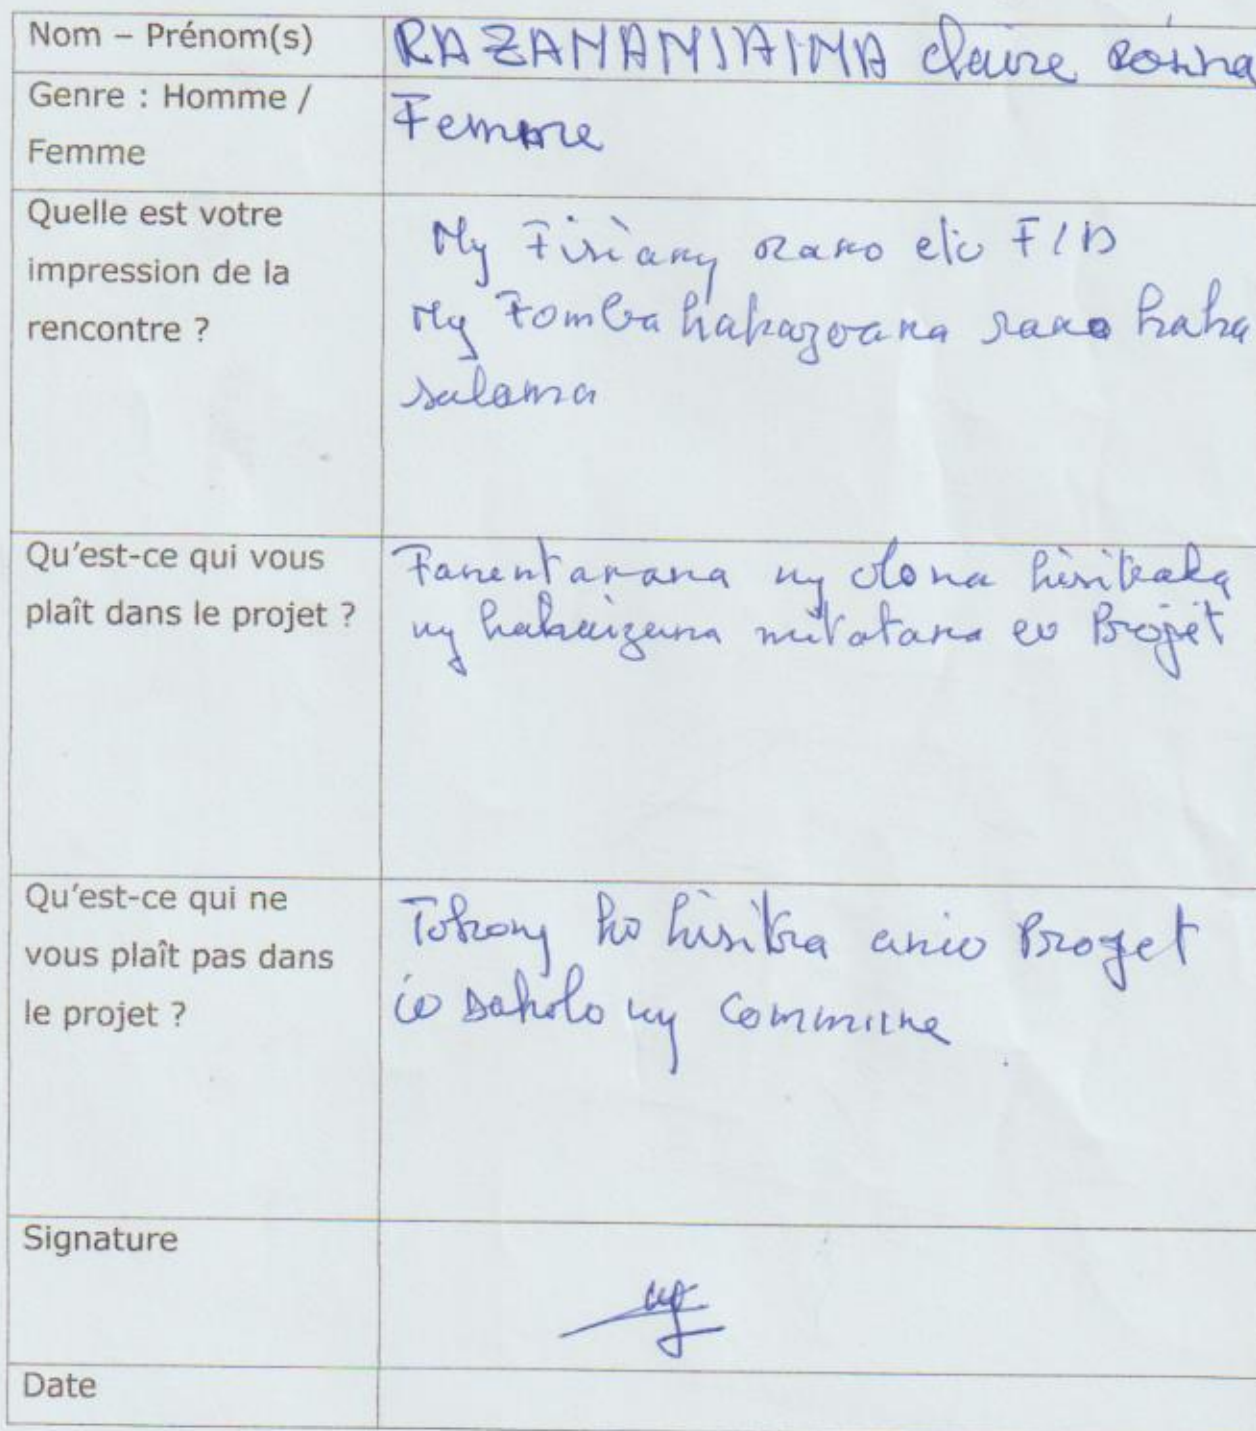 Nom – Prénom(s)
RAZANANJAIMA Claire
Genre : Homme /
Femme
Femme
Quelle est votre
impression de la
rencontre ?
Ny Fisiany rano eto FID
Ny Fomba hahazoana rano haha
salama
Qu'est-ce qui vous
plaît dans le projet ?
Fanentanana ny olona hisitraka
ny hahaizana mitatana eo Projet
Qu'est-ce qui ne
vous plaît pas dans
le projet ?
Tokony ho hisitra anio Projet
io Daholo ny Commune
Signature
Date